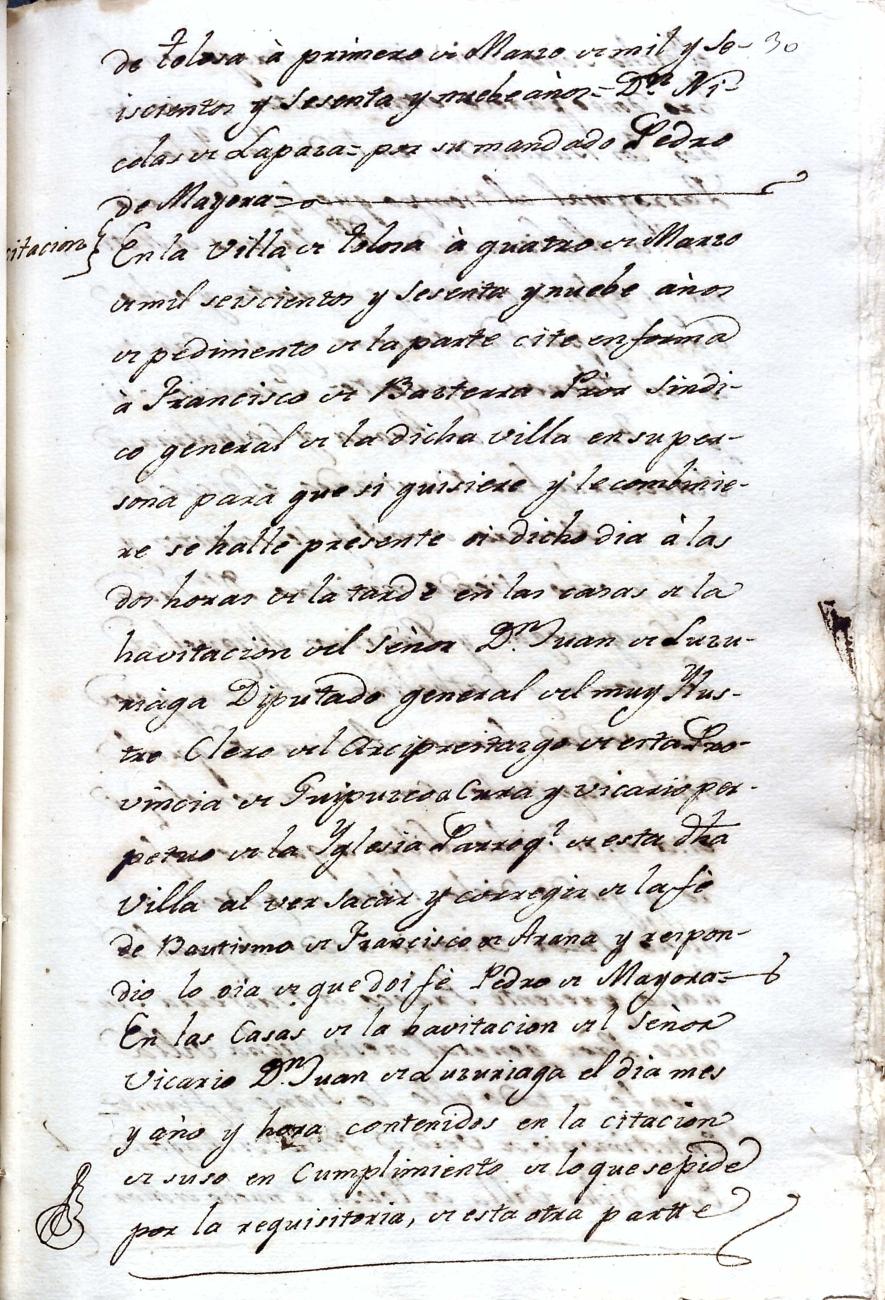 30
de tolosa à primero de Marzo de mil y se-
iscientos y Sesenta y nuebe años= Dn. Ni-
colas de Lapaza= por su mandado Pedro
de Mayora=
citacion}
En la Villa de tolosa à quatro de Marzo
de mil seiscientos y Sesenta y nuebe años
de pedimento de la parte cite en forma
à Francisco de Basterra Prior Sindi-
co general de la dicha villa en su per-
sona para que si quisiere y le combinie-
re se halle presente oi dicho dia à las
dos horas de la tarde en las casas de la
havitacion del Señor Dn. Juan de Luzu-
riàga Diputado general del muy Yllus-
tre Clero del Arcipreitazgo de esta Pro-
vincia de Guipuzcoa Cura y Vicario per-
petuo de la Yglesia Parroql. de esta dha
Villa al ver sacar y corregir de la fè
de Bautismo de Francisco de Arana y respon-
dio lo oia de que doi fè Pedro de Mayora=
En las Casas de la havitacion del Señor
Vicario Dn. Juan de Luzuriaga el dia mes
y año y hora contenidos en la citacion
de suso en Cumplimiento de lo que se pide
por la requisitoria, de esta otra partte